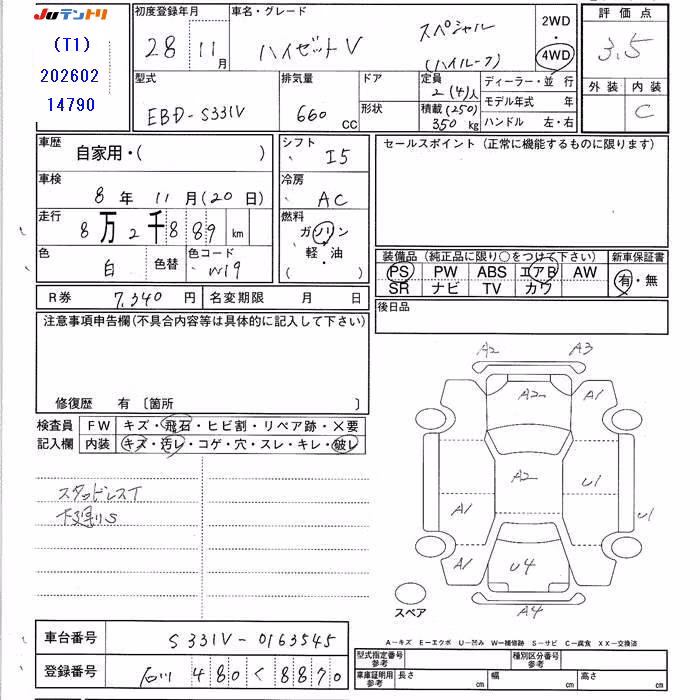 Juテントリ
(T1)
202602
14790
初度登録年月
28 11月
車名・グレード
ハイゼットV
スペシャル
(ハイルーフ)
2WD
・
4WD
評価点
3.5
外装 内装
C
型式
EBD-S331V
排気量
660 CC
ドア
形状
定員
2(4)人
積載(250)
350 kg
ディーラー・並行
モデル年式 年
ハンドル 左・右
車歴
自家用・( )
シフト
I5
セールスポイント(正常に機能するものに限ります)
車検
8年 11月(20日)
冷房
AC
走行
8万2千889 km
燃料
ガソリン
軽・油
( )
色
白
色替
色コード
W19
装備品(純正品に限り○をつけて下さい)
PS PW ABS エアB AW
SR ナビ TV カワ
新車保証書
有・無
R券 7,340円
名変期限 月 日
後日品
注意事項申告欄(不具合内容等は具体的に記入して下さい)
修復歴 有〔箇所 〕
検査員
記入欄
FW キズ・飛石・ヒビ割・リペア跡・×要
内装 キズ・汚レ・コゲ・穴・スレ・キレ・破レ
スタッドレスT
下廻りS
A2 A3
A2 A1
A2 U1
A1 U1
A1 U4
A4
スペア
A-キズ E-エクボ U-凹み W-補修跡 S-サビ C-腐食 XX-交換済
車台番号 S331V-0163545
登録番号 石川 480 く 8870
型式指定番号
参考
種別区分番号
参考
車庫証明用
参考
長さ cm 幅 cm 高さ cm